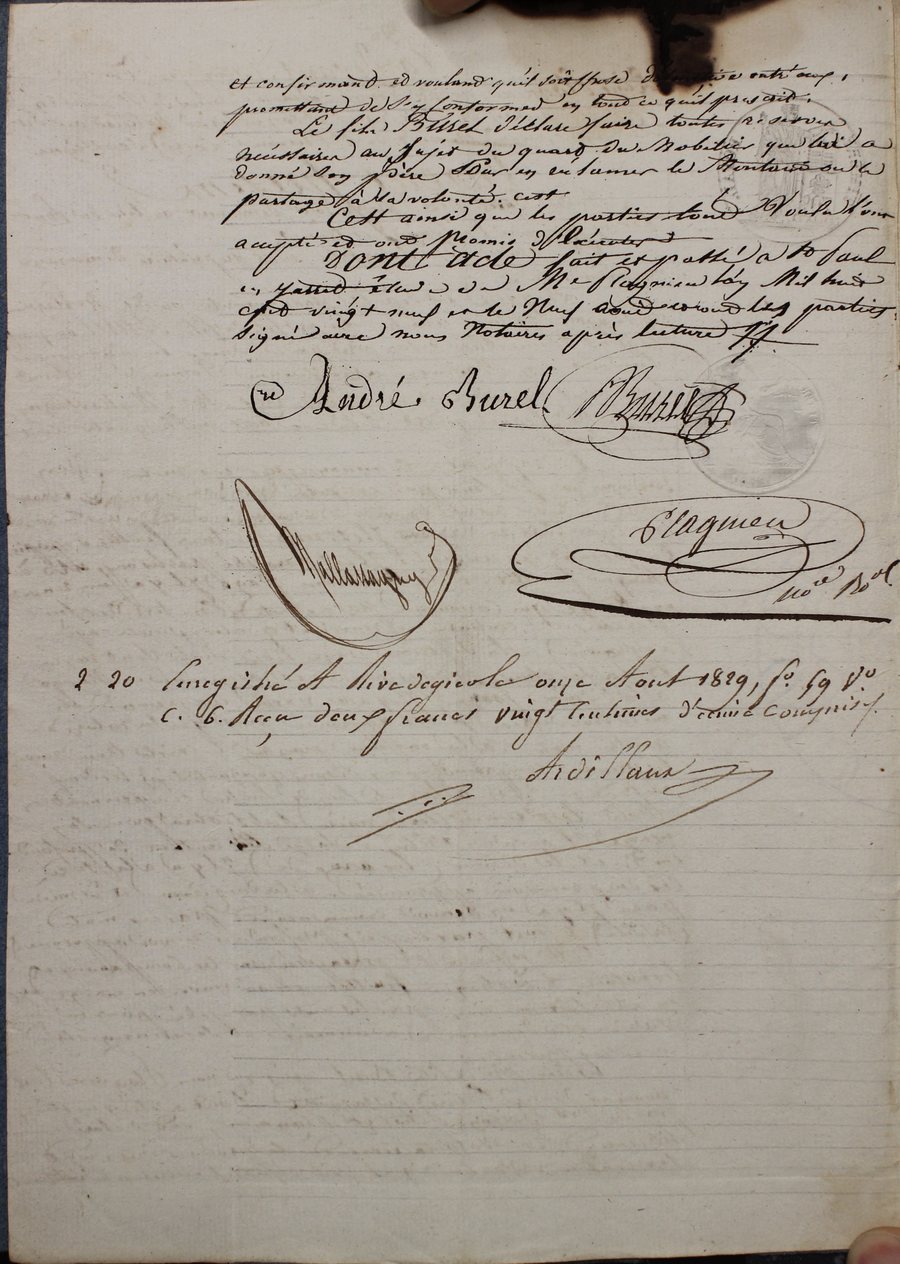 et confirmand et vouland qu'il soit
promettant de s'y conformer en tout ce qu'il prescrit.
Le fils Burel déclare faire toutes réserves
nécessaires au sujet du quart du Mobilier que lui a
donné son père Pour en réclamer le Montant ou le
partage à sa volonté. cest
Cest ainsi que les parties l'ont Voulu l'ont
accepté et ont Promis
Dont acte fait et passé a St Paul
en Jarret étude de Me Plagnieu l'an Mil huit
cent vingt neuf et le Neuf aout et ont les parties
signé avec nous Notaires après lecture
André Burel Burel
Mallassagny
Plagnieu
nore Roal
2 20 Enregistré A Rivedegier le onze Aout 1829, fo. 59 Vo
c. 6. Reçu deux francs vingt Centimes d'ecime Compris
Ardillaux